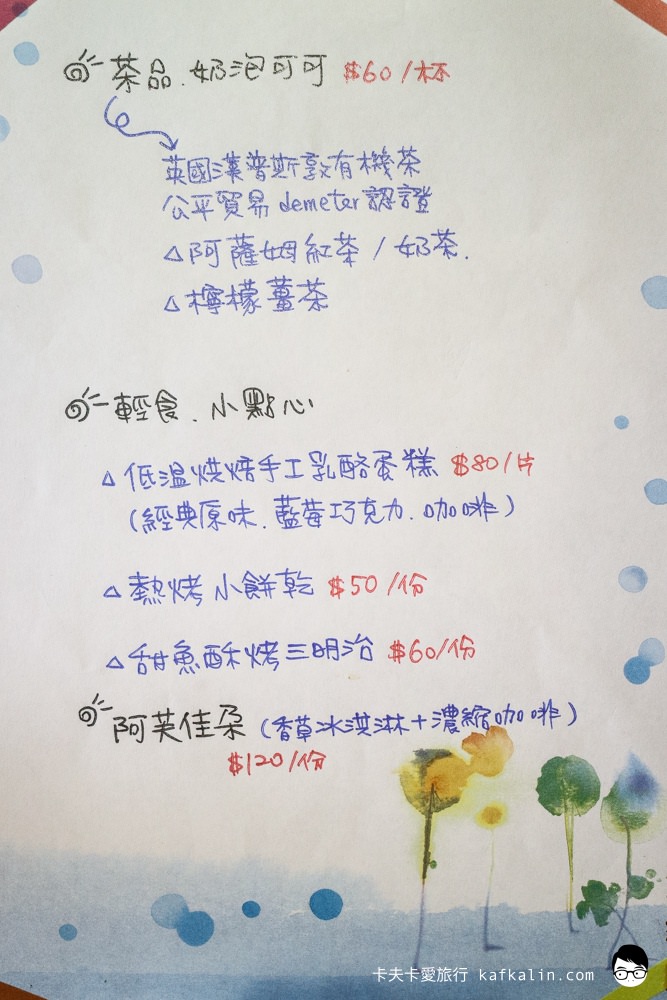 茶品.奶泡可可 $60/杯
英國漢普斯敦有機茶
公平貿易 demeter認證
△阿薩姆紅茶/奶茶.
△檸檬薑茶
輕食.小點心
△低溫烘焙手工乳酪蛋糕 $80/片
(經典原味.藍莓巧克力.咖啡)
△熱烤小餅乾 $50/份
△甜魚酥烤三明治 $60/份
阿芙佳朵(香草冰淇淋+濃縮咖啡)
$120/份
卡夫卡愛旅行 kafkalin.com